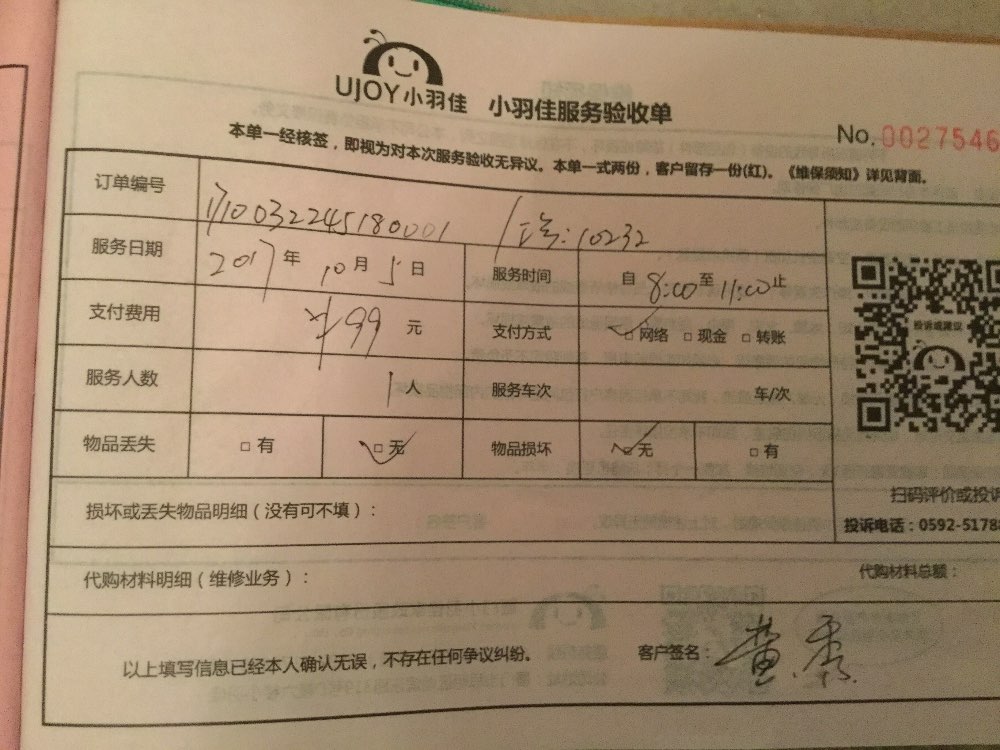 UJOY小羽佳 小羽佳服务验收单
No.0027546
本单一经核签，即视为对本次服务验收无异议。本单一式两份，客户留存一份(红)。《维保须知》详见背面。
订单编号 1710032245180001 工号:10232
服务日期 2017年10月5日 服务时间 自8:00至11:00止
支付费用 ¥99元 支付方式 ☑网络 □现金 □转账
服务人数 1人 服务车次 车/次
物品丢失 □有 ☑无 物品损坏 ☑无 □有
投诉或建议
扫码评价或投诉
投诉电话：0592-5178
损坏或丢失物品明细（没有可不填）：
代购材料明细（维修业务）： 代购材料总额：
以上填写信息已经本人确认无误，不存在任何争议纠纷。 客户签名：黄秀